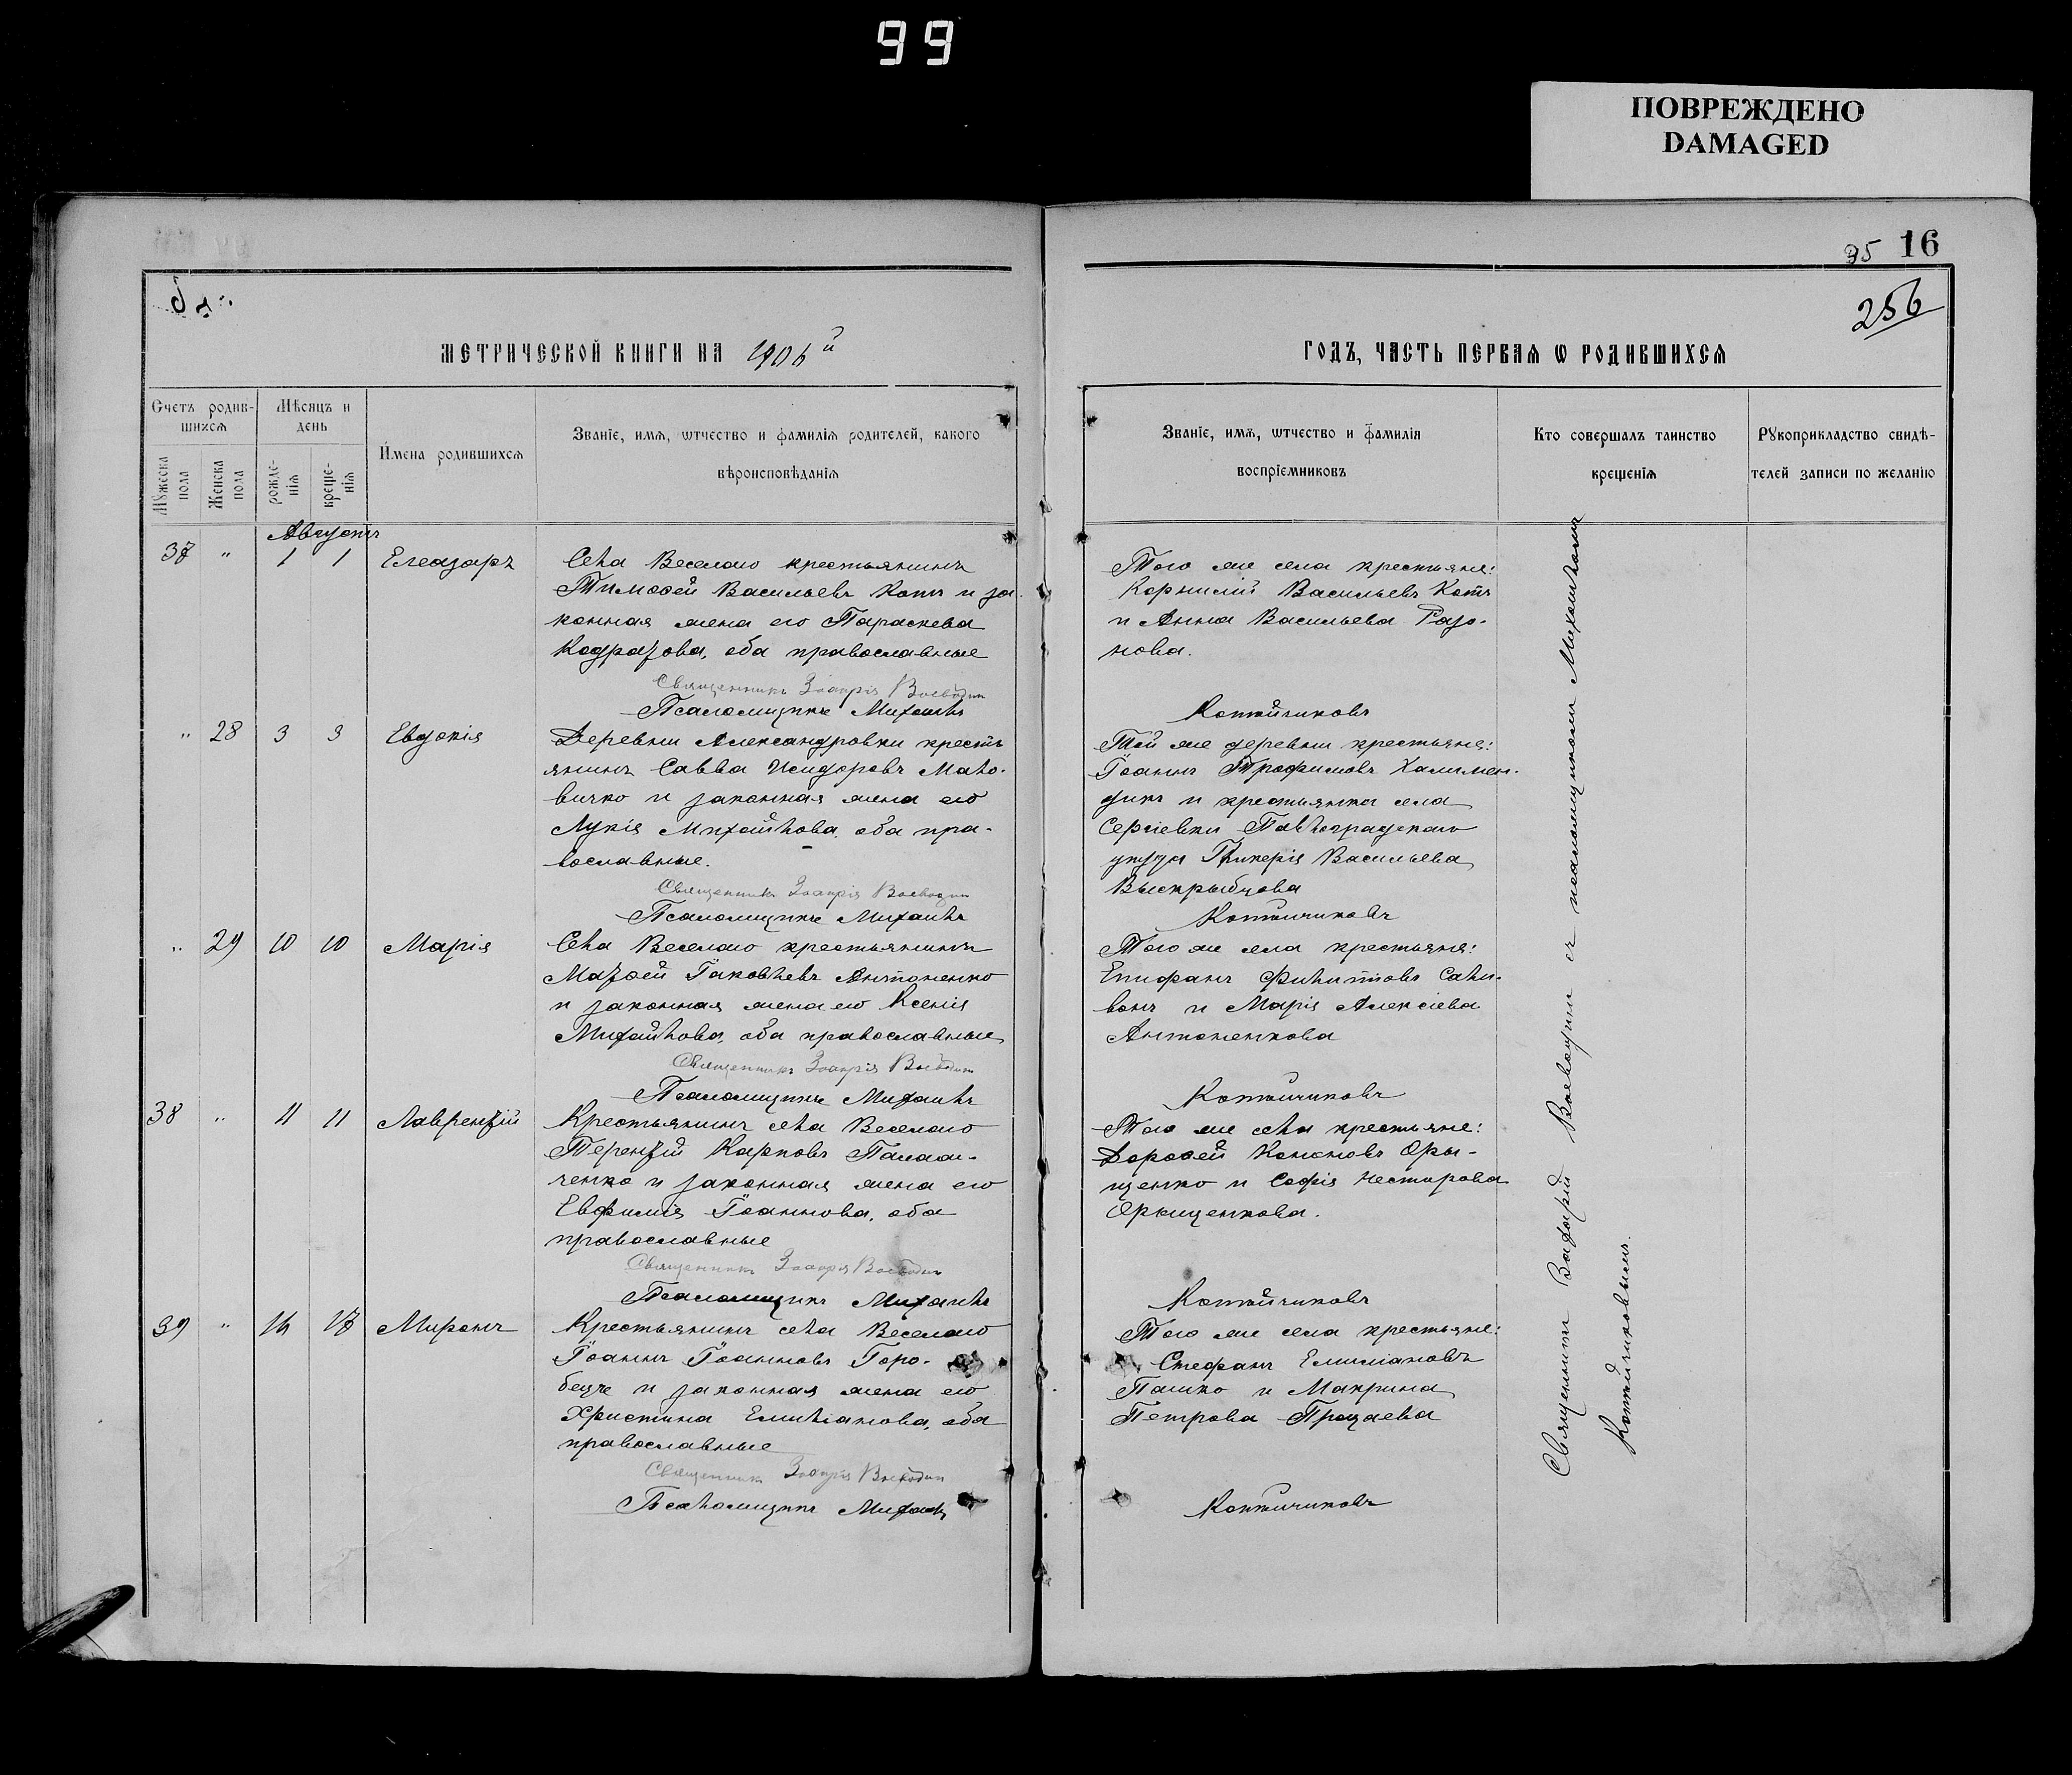 99
ПОВРЕЖДЕНО
DAMAGED
95 16
256
МЕТРИЧЕСКОЙ КНИГИ НА 1906й
ГОДЪ, ЧАСТЬ ПЕРВАЯ Ѡ РОДИВШИХСЯ
Счетъ родив-
шихся
Мѣсяцъ и
день
Имена родившихся
Званіе, имя, ѡтчество и фамилія родителей, какого
вѣроисповѣданія
Мужеска
пола
Женска
пола
рожде-
нія
креще-
нія
Званіе, имя, ѡтчество и фамилія
воспріемниковъ
Кто совершалъ таинство
крещенія
Рукоприкладство свидѣ-
телей записи по желанію
Августъ
37 " 1 1 Елеазаръ
Села Веселаго крестьянинъ
Тимоѳей Васильевъ Котъ и за
конная жена его Параскева
Кодратова, оба православные
Священникъ Захарія Воеводин
Псаломщикъ Михаилъ
Того же села крестьяне:
Корнилій Васильевъ Котъ
и Анна Васильева Разо-
нова.
Котлйчиковъ
" 28 3 3 Евдокія
Деревни Александровки кресть
янинъ Савва Исидоровъ Мало-
вичко и законная жена его
Лукія Михайлова, оба пра-
вославные.
Священникъ Захарія Воеводин
Псаломщикъ Михаилъ
Той же деревни крестьяне:
Іоаннъ Трофимовъ Халимен-
дикъ и крестьянка села
Сергіевки Павлоградскаго
уѣзда Гликерія Васильева
Выскрыбцова
" 29 10 10 Марія
Села Веселаго крестьянинъ
Матѳей Іаковлевъ Антоненко
и законная жена его Ксенія
Михайлова, оба православные
Священникъ Захарія Воеводин
Псаломщикъ Михаилъ
Того же села крестьяне:
Епифанъ Филиповъ Сали-
вонъ и Марія Алексіева
Антоненкова
38 " 11 11 Лаврентій
Крестьянинъ села Веселаго
Терентій Карповъ Палам-
ченко и законная жена его
Евфимія Іоаннова, оба
православные
Священникъ Захарія Воеводин
Псаломщикъ Михаилъ
Того же села крестьяне:
Дороѳей Кононовъ Оры-
щенко и Софія Несторова
Орыщенкова.
39 " 16 17 Миронъ
Крестьянинъ села Веселаго
Іоаннъ Іоанновъ Горо-
бецъ и законная жена его
Христина Емиліанова, оба
православные
Священникъ Захарія Воеводин
Псаломщикъ Михаилъ
Того же села крестьяне:
Стефанъ Емиліановъ
Пашко и Макрина
Петрова Процаева
Священникъ Захарій Воеводин съ псаломщикомъ Михаиломъ